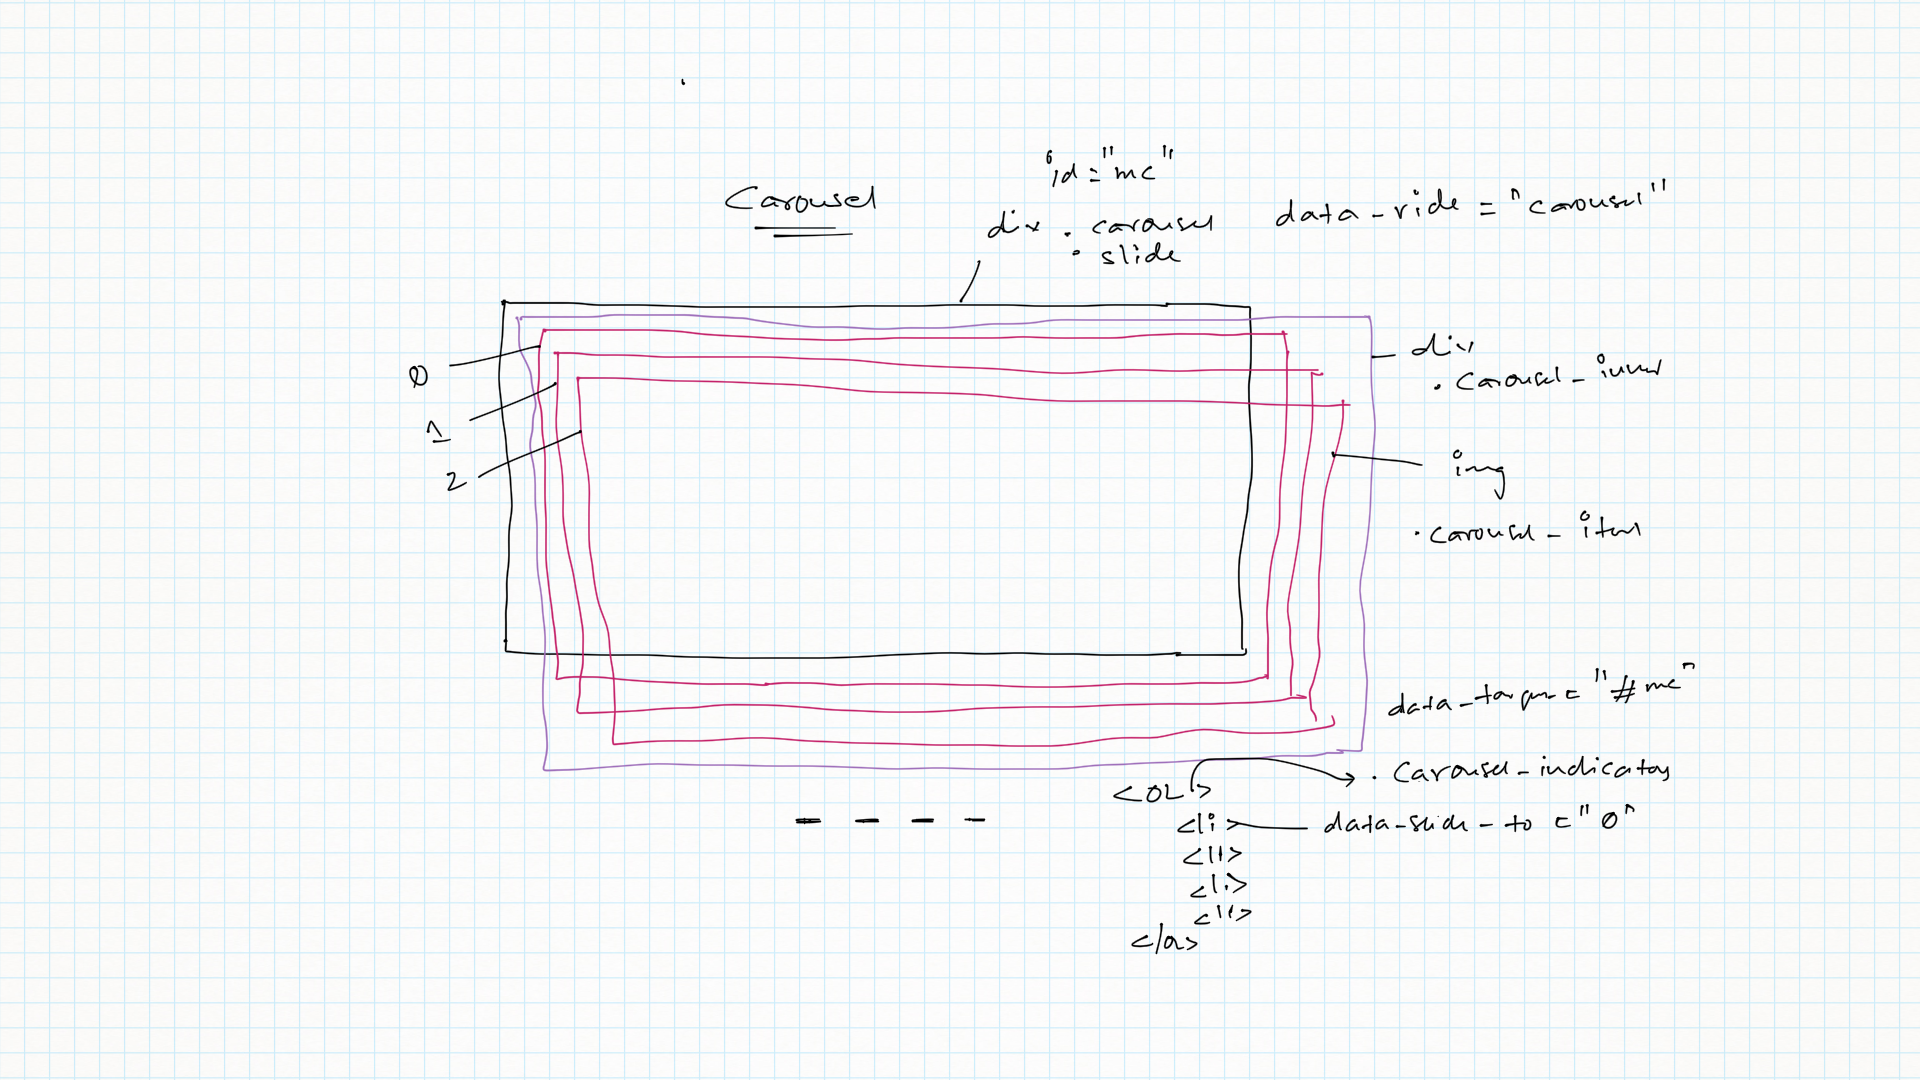 id="mc"
Carousel
div . carousel
data-ride="carousel"
. slide
div
. Carousel-inner
0
1
2
img
. carousel-item
data-target="#mc"
. Carousel-indicators
<OL>
<li> data-slide-to="0"
<li>
<li>
<li>
</ol>